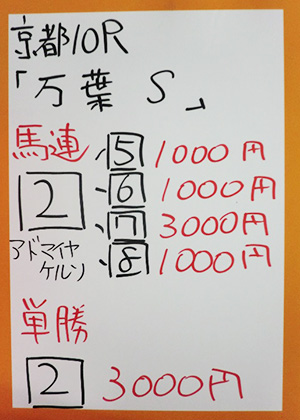 京都10R
「万葉S」
馬連
2
アドマイヤ
ケルソ
5 1000円
6 1000円
7 3000円
8 1000円
単勝
2 3000円